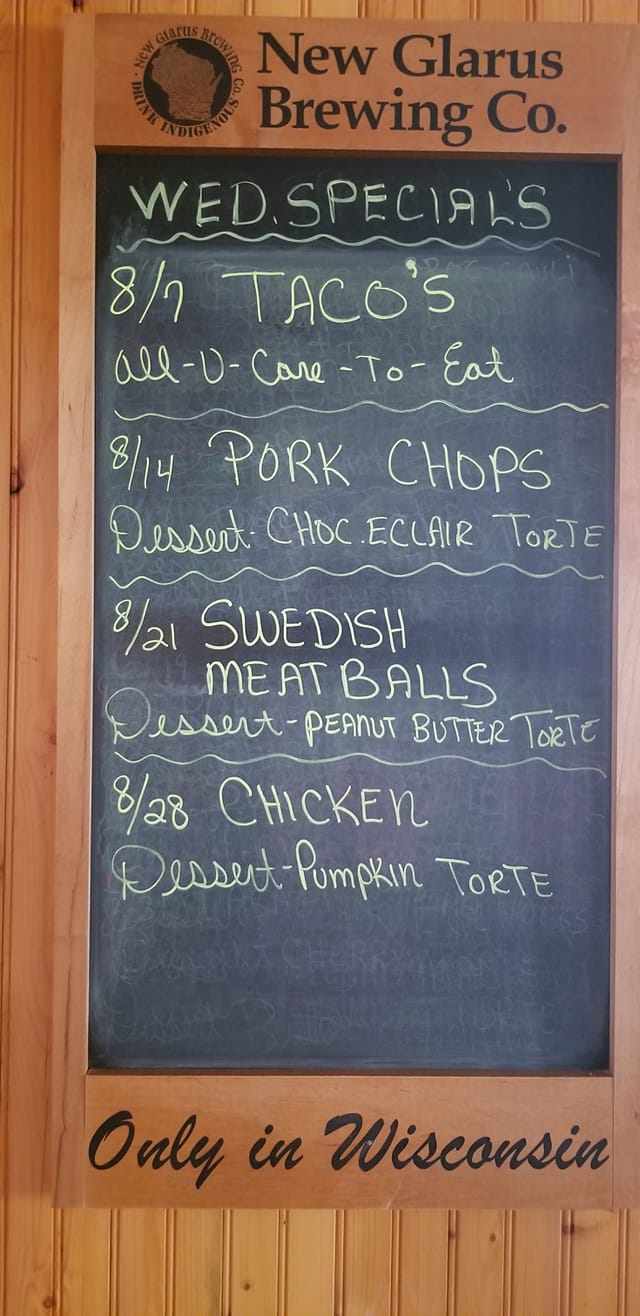 NEW GLARUS BREWING CO.
DRINK INDIGENOUS
New Glarus
Brewing Co.
WED. SPECIAL'S
8/7 TACO'S
All-U-Care-To-Eat
8/14 PORK CHOPS
Dessert-CHOC. ECLAIR TORTE
8/21 SWEDISH
MEAT BALLS
Dessert-PEANUT BUTTER TORTE
8/28 CHICKEN
Dessert-Pumpkin TORTE
Only in Wisconsin